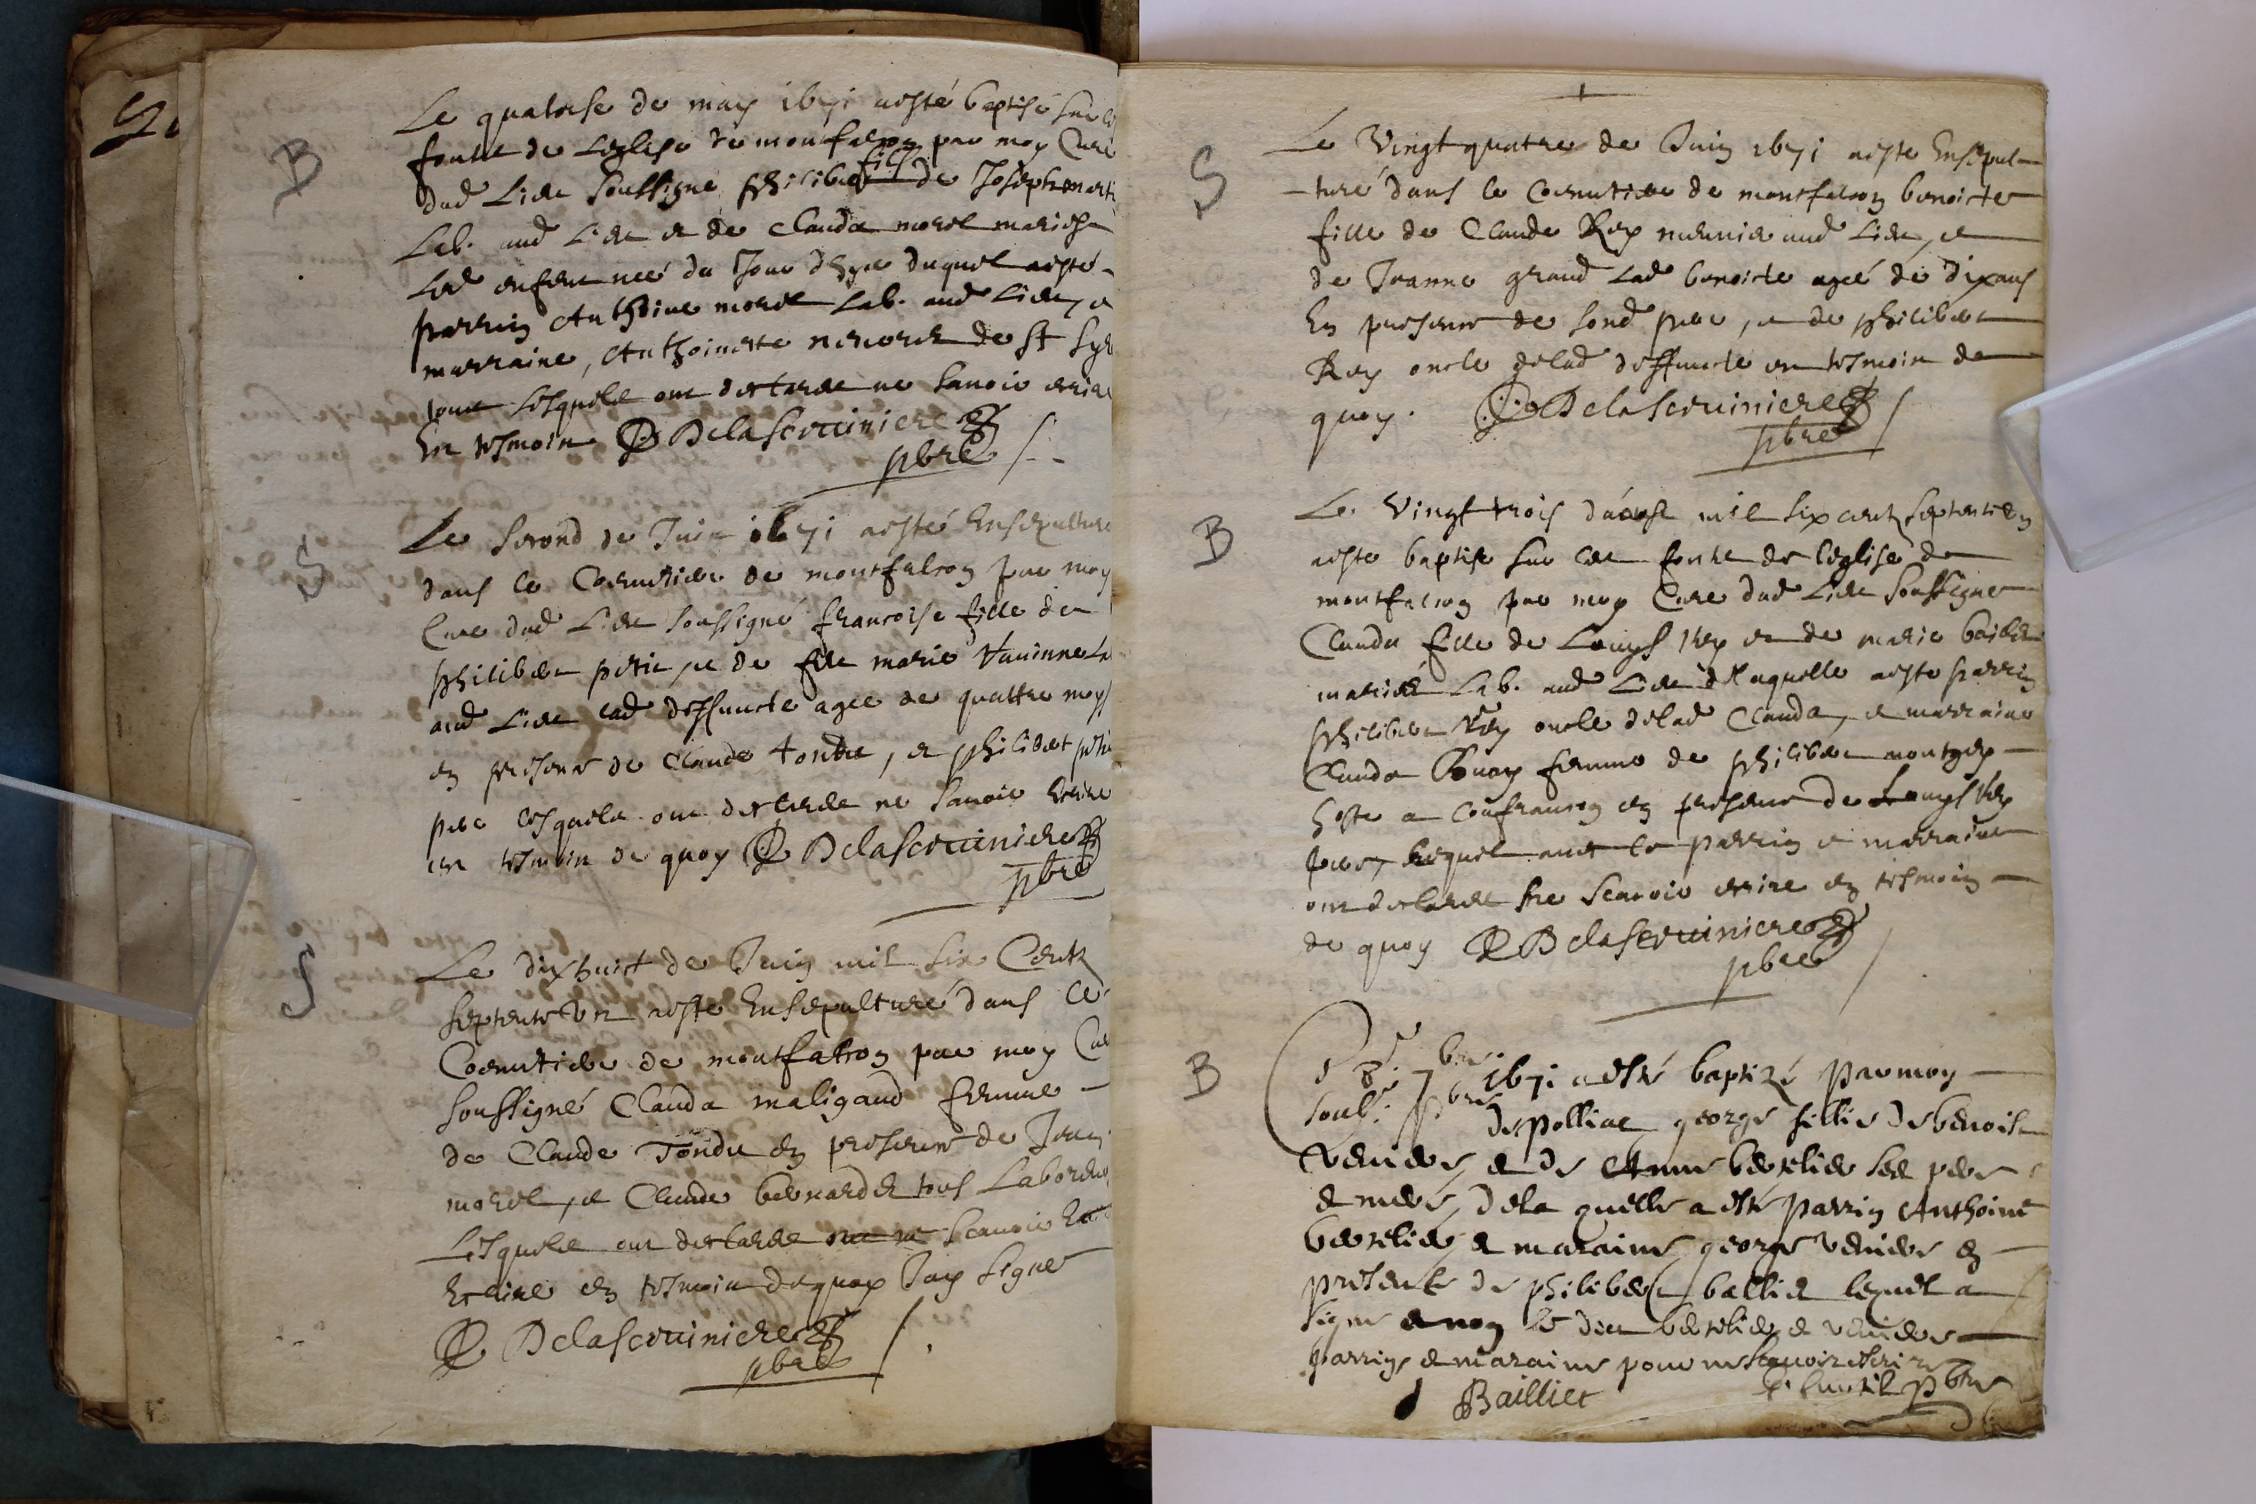 B
Le quatorse de may 1671 a esté baptisé sur les
fonts de Leglise de montfalcon par moy Curé
dud Lieu soussigne philibert fils de Joseph marti
Lab. aud Lieu et de Clauda morel mariés
Led enfent neé du Jour dhyer duquel a esté
parrin Anthoine morel Lab. aud Lieu, et
marraine, Anthoinette de St
tous lesquels ont desclarés ne sauoir escrire
En tesmoin Delaseruiniere
pbre
S
Le second de Juin 1671 a esté Ensepulture
dans le Coemetiere de montfalcon par moy
Cure dud Lieu soussigné francoise fille de
philibert petit, et de feu marie
aud Lieu lad deffuncte agee de quattre moys
en presence de Claude tondu, et philibert petit
pere lesquels ont desclarés ne sauoir Escrire
en tesmoin de quoy Delaseruiniere
pbre
S
Le dixhuict de Juin mil six Centz
septente Vn a este Ensepulturé dans le
Coemetiere de montfalcon par moy Cure
soussigné Clauda maligand femme
de Claude Tondu en presence de Jean
morel, et Claude bernardet tous Laboreurs
Lesquels ont desclarés ne scauoir
Escrire en tesmoin dequoy Jay signe
Delaseruiniere
pbre
S
Le Vingt quatre de Juin 1671 a este Ensepul-
-turé dans le Coemetiere de montfalcon benoicte
fille de Claude Rey meunier aud Lieu, et
de Jeanne grand lad benoicte ageé de dix ans
En presence de sond pere, et de philibert
Rey oncle delad deffuncte en tesmoin de
quoy. Delaseruiniere
pbre
B
Le Vingt trois daoust mil six centz septente Vn
a este baptise sur les fonts de leglise de
montfalcon par moy Cure dud Lieu soussigne
Clauda fille de Louys Rey et de marie
mariés Lab. aud Lieu de laquelle a este parrin
philibert Rey oncle delad Clauda, et marraine
Clauda femme de philibert montgey
hoste a Confrancon en presence de Louys Rey
pere, lequel auec le parrin et marraine
ont desclarés ne scauoir escrire en tesmoin
de quoy Delaseruiniere
pbre
B
1671 a esté baptizé par moy
soubs. pbre de polliat george fillie de benoist
Venier, et de Anne bertelier ses pere
et mere, dela quelle a esté parrin Anthoine
bertelier et maraine george Venier en
presence de philibert balliet lequel a
signe et non le dict bertelier et Venier
parrin et maraine pour ne scauoir escrire
Bailliet pbre